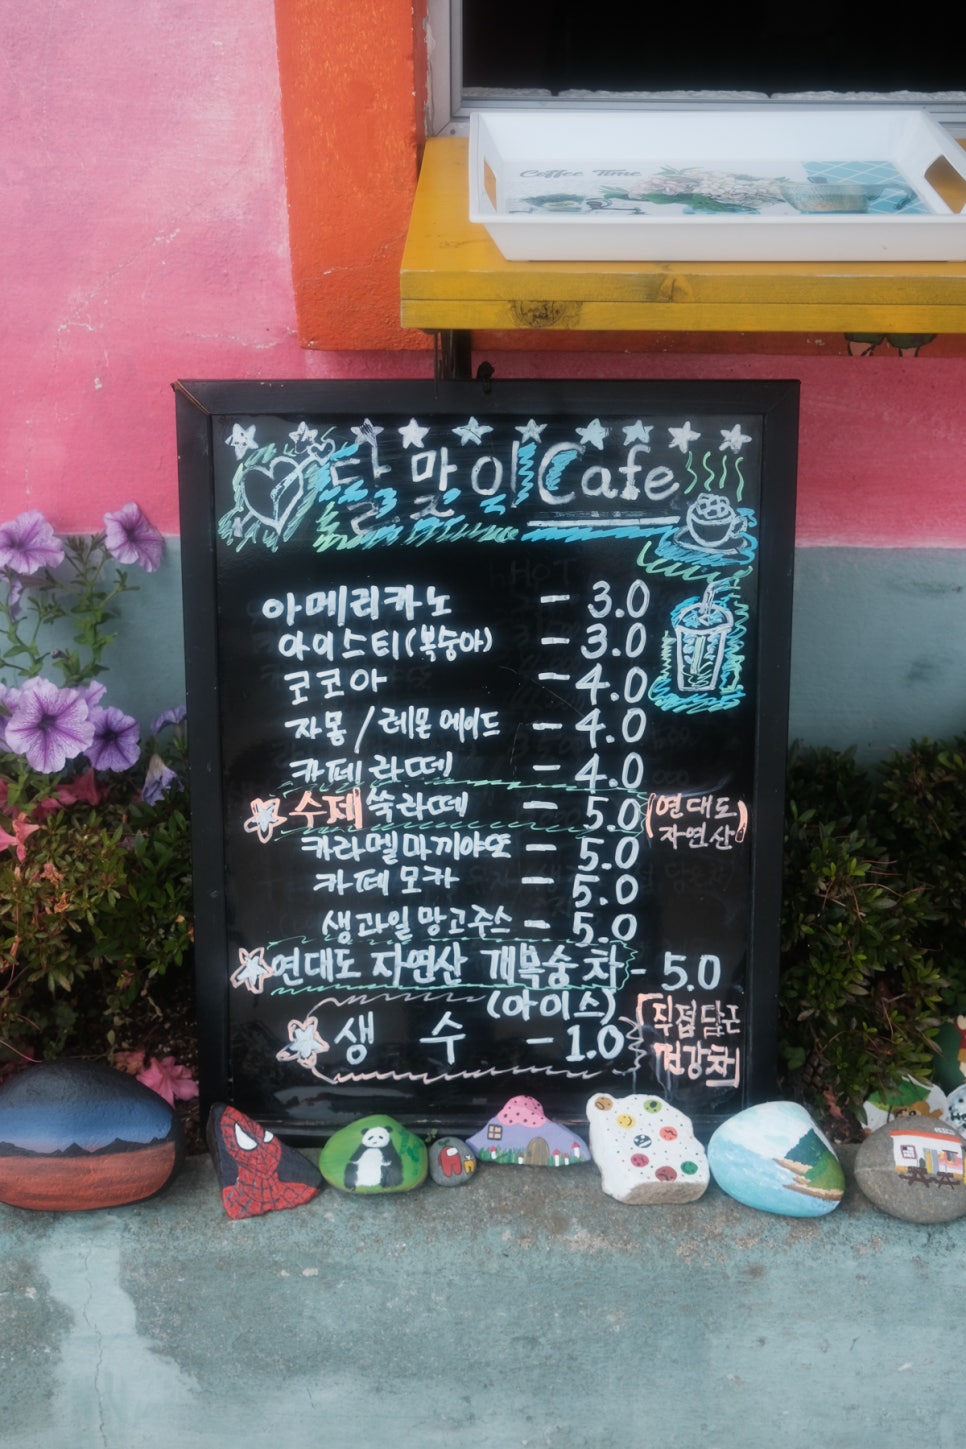 Coffee Time
달맞이 Cafe
아메리카노 - 3.0
아이스티(복숭아) - 3.0
코코아 - 4.0
자몽/레몬에이드 - 4.0
카페라떼 - 4.0
수제쑥라떼 - 5.0 (연대도 자연산)
카라멜마끼야또 - 5.0
카페모카 - 5.0
생과일망고주스 - 5.0
연대도 자연산 개복숭차 - 5.0
(아이스)
생 수 - 1.0
직접담근
건강차